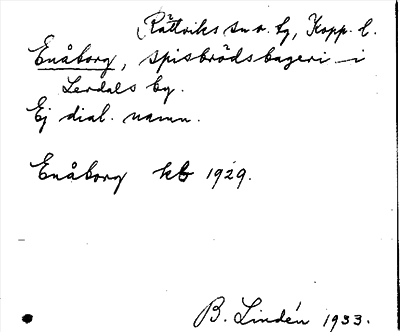 (Rättviks sn o. tg, Kopp. l.
Enåborg, spisbrödsbageri i
Lerdals by.
Ej dial. namn.
Enåborg kb 1929.
B. Lindén 1933.